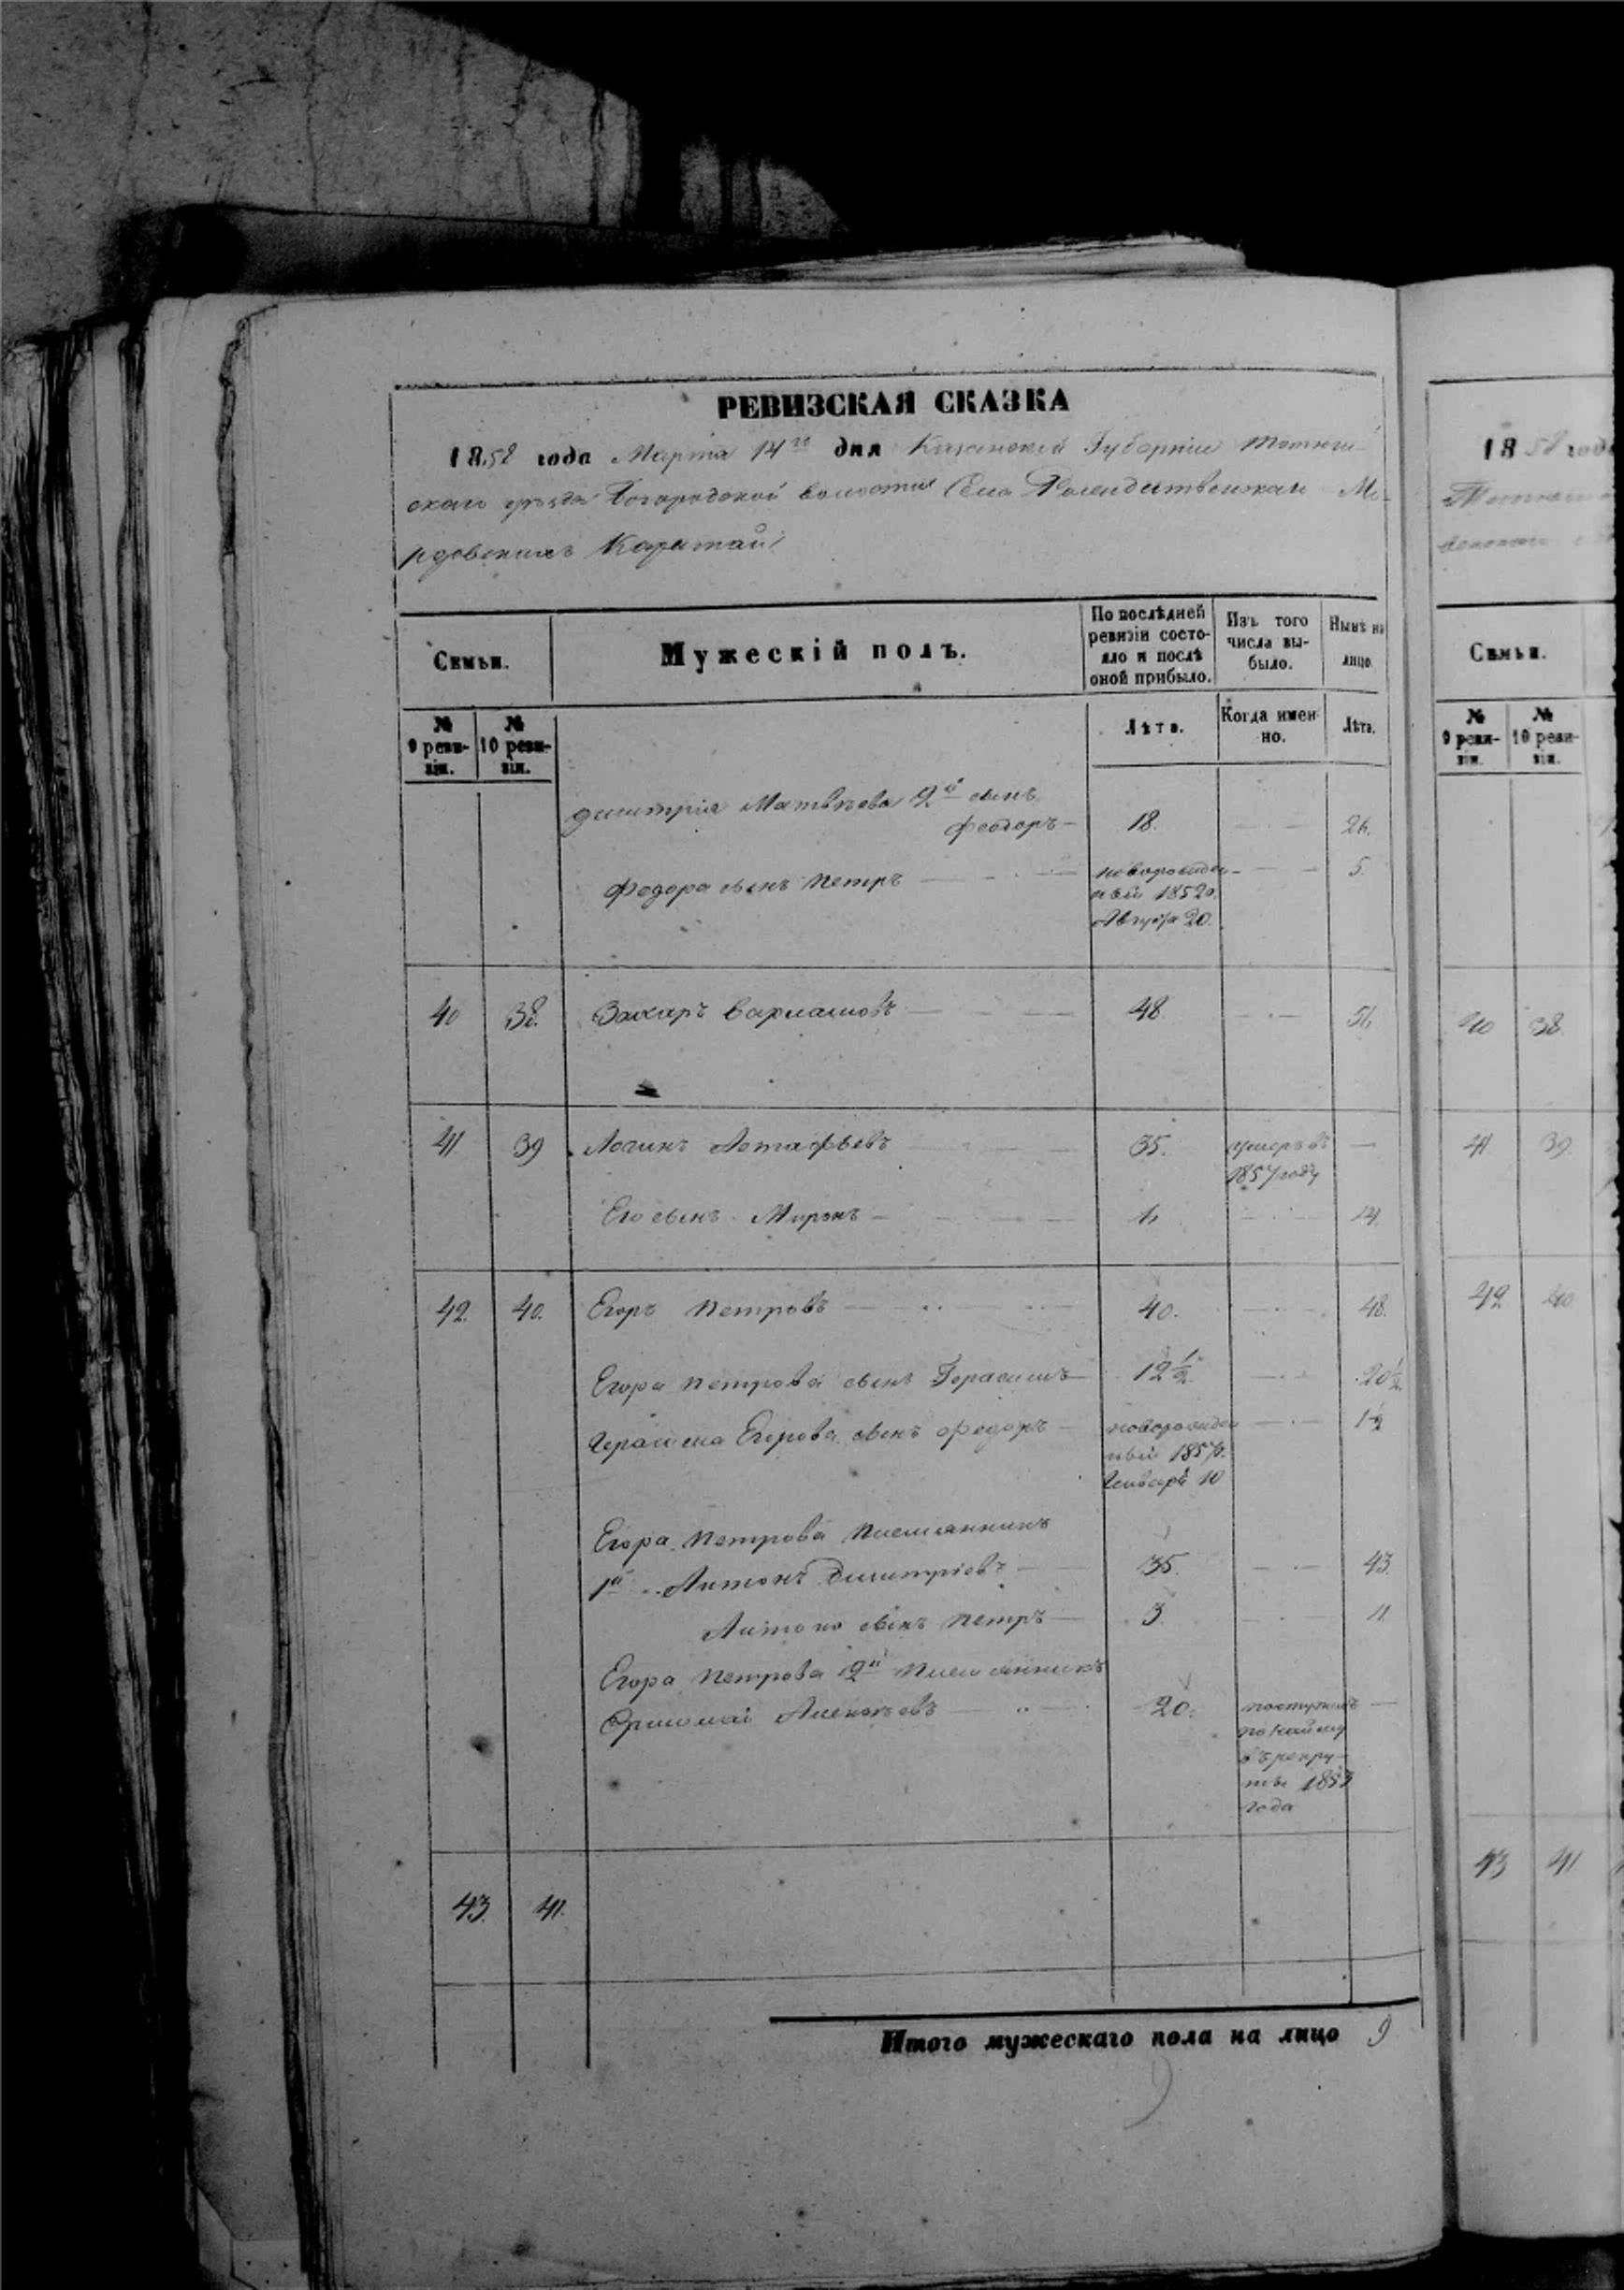 РЕВИЗСКАЯ СКАЗКА
1858 года Марта 14го дня Казанской Губерніи Тетюш
скаго уѣзда Богородской волости Села Рождественскаго Мо-
рдовскихъ Каратай
Семьи.
№ 9 реви-зіи.
№ 10 реви-зіи.
Мужескій полъ.
По послѣдней ревизіи состо-яло и послѣ оной прибыло.
Изъ того числа вы-было.
Нынѣ на лицо.
Лѣта.
Когда имен-но.
Лѣта.
Димитрія Матвѣева 2й сынъ
Феодоръ — 18. — 26.
Федора сынъ Петръ — новорожден- — 5.
ный 1852 г.
Августа 20.
40 38. Захаръ Варламовъ — 48. — 56.
41 39 Логинъ Астафьевъ — 35. умеръ въ —
1857 году
Его сынъ Миронъ — 6 — 14.
42. 40. Егоръ Петровъ — 40. — 48.
Егора Петрова сынъ Герасимъ — 12 1/2 — 20 1/2
Герасима Егорова сынъ Федоръ — новорожден — 1 1/2
ный 1857 г.
Генварѣ 10
Егора Петрова племянникъ
1й Антонъ Димитріевъ — 35. — 43.
Антона сынъ Петръ — 3. — 11.
Егора Петрова 2й племянникъ
Алексѣевъ — 20. поступилъ —
по найму
въ рекру-
ты 1853
года
43. 41.
Итого мужескаго пола на лицо 9
1858 года
Семьи.
№ 9 реви-зіи.
№ 10 реви-зіи.
40 38.
41 39.
42 40
43 41